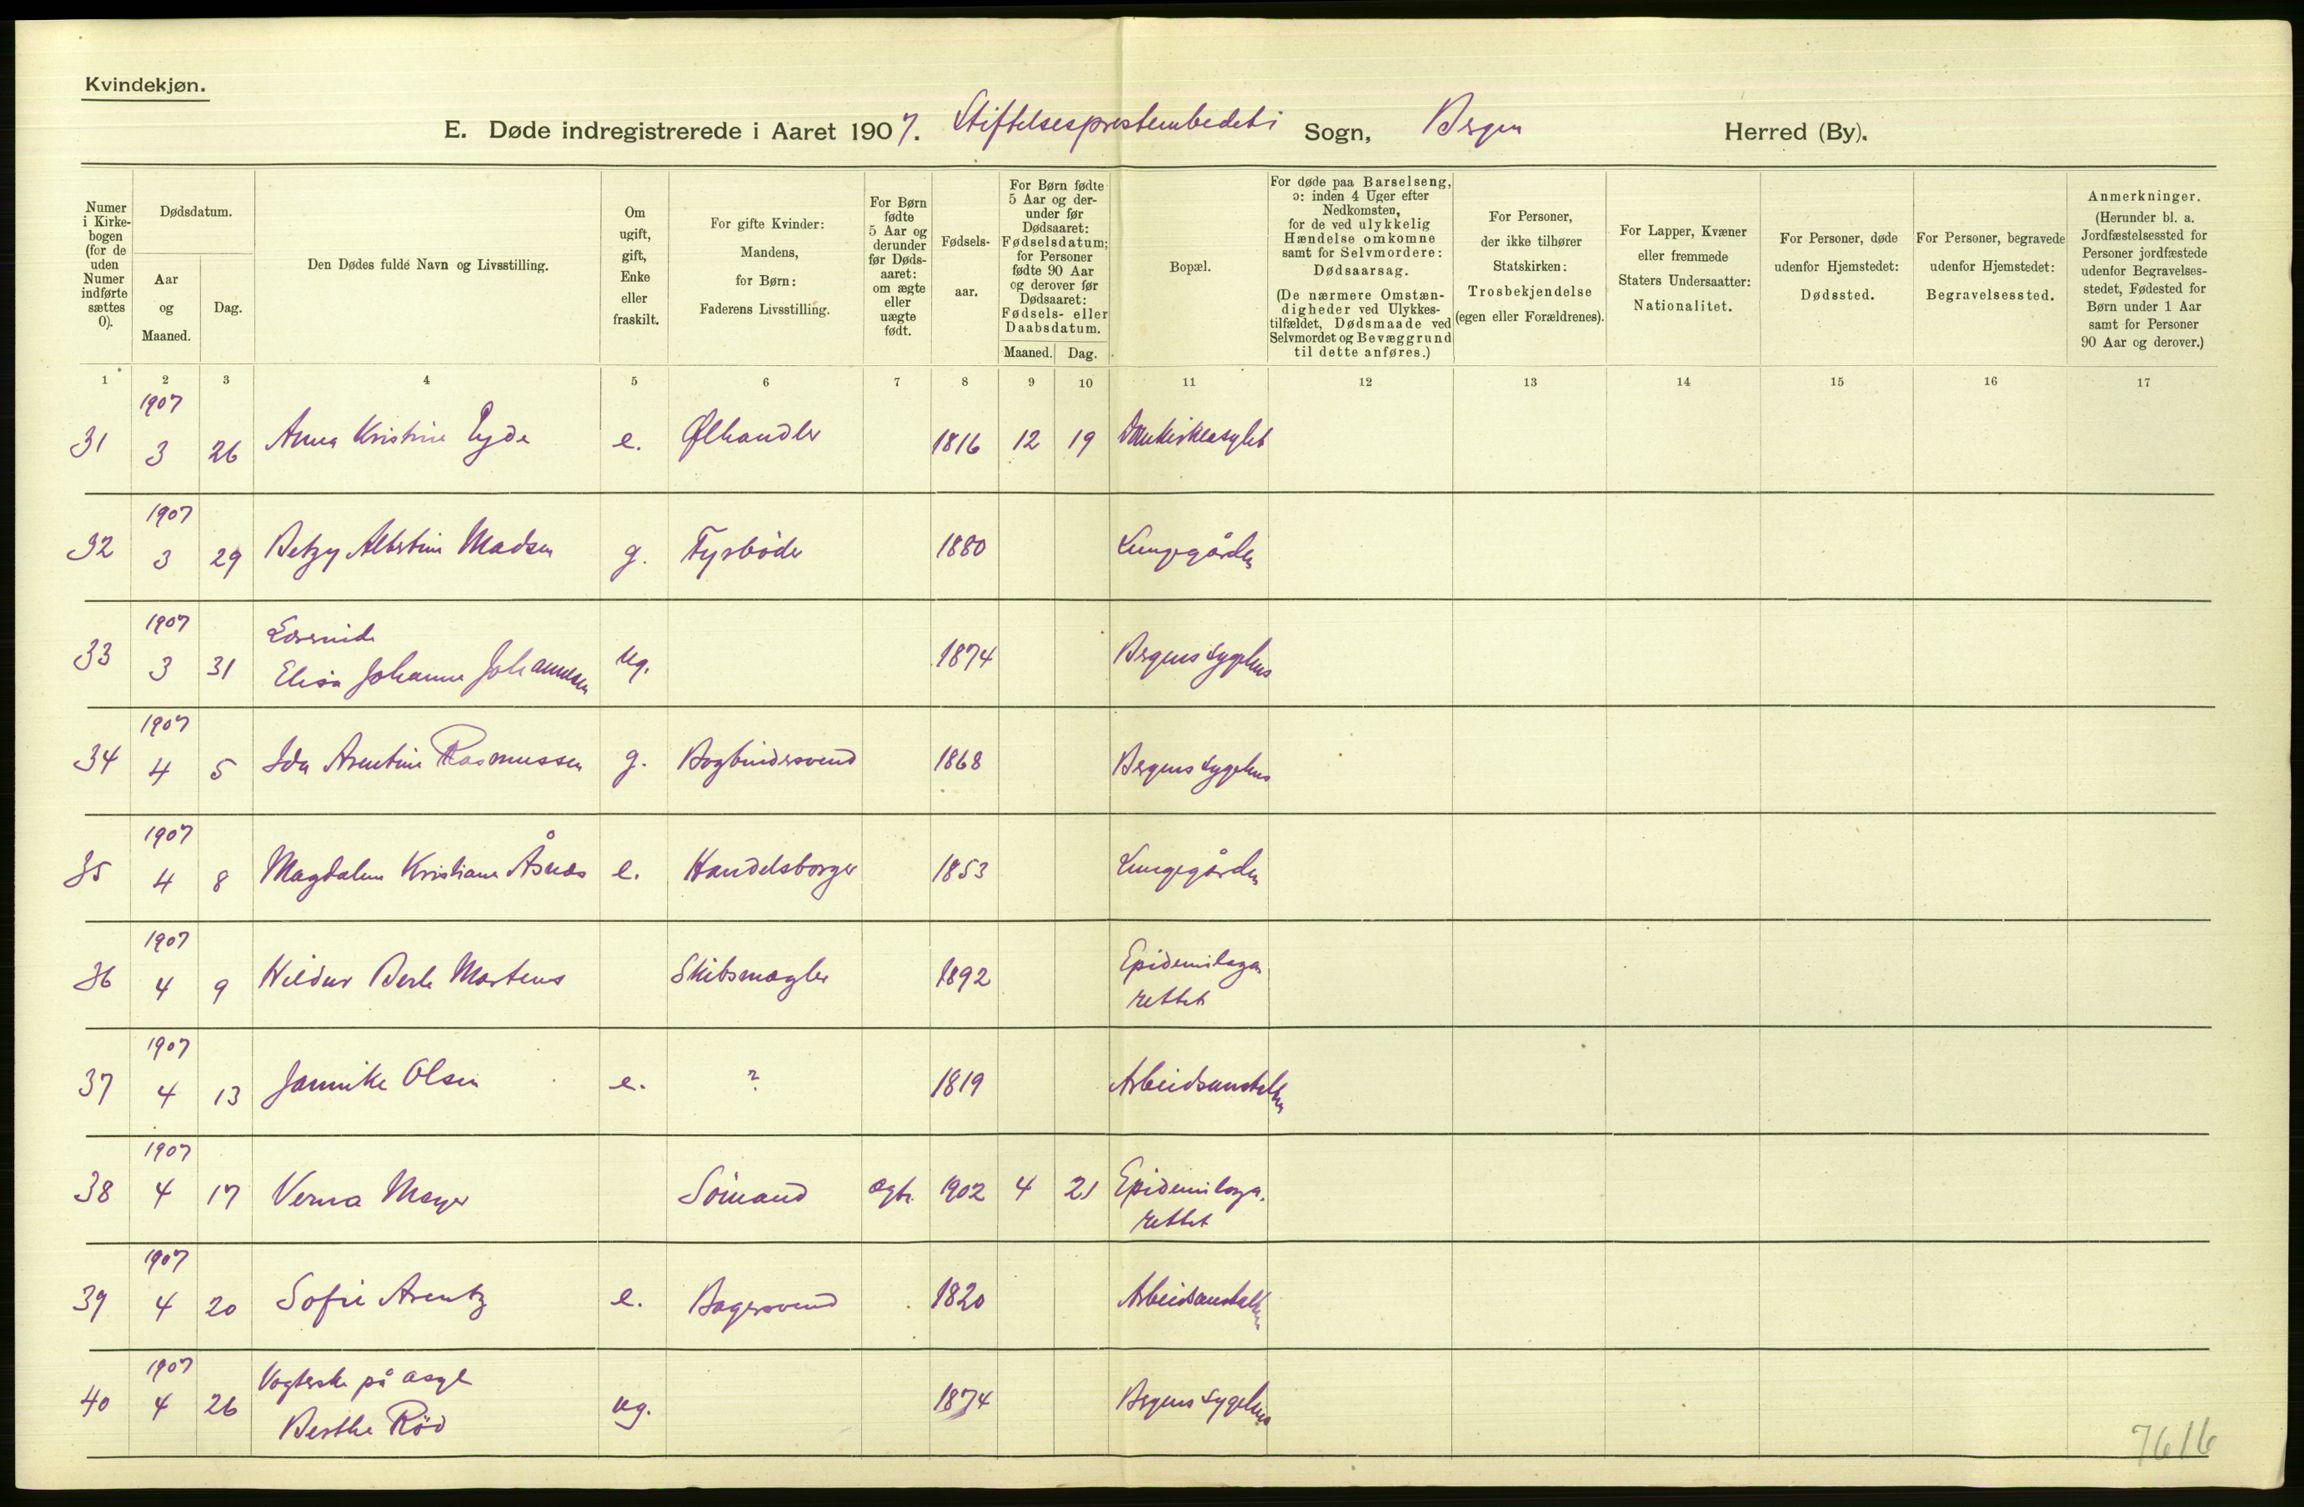 Kvindekjøn.
E. Døde indregistrerede i Aaret 1907. Stiftelsesprestembedet i Sogn, Bergen Herred (By).
Numer i Kirkebogen (for de uden Numer indførte sættes 0).
Dødsdatum.
Aar og Maaned.
Dag.
Den Dødes fulde Navn og Livsstilling.
Om ugift, gift, Enke eller fraskilt.
For gifte Kvinder: Mandens, for Børn: Faderens Livsstilling.
For Børn fødte 5 Aar og derunder før Dødsaaret: om ægte eller uægte født.
Fødselsaar.
For Børn fødte 5 Aar og derunder før Dødsaaret: Fødselsdatum; for Personer fødte 90 Aar og derover før Dødsaaret: Fødsels- eller Daabsdatum.
Maaned. Dag.
Bopæl.
For døde paa Barselseng, ɔ: inden 4 Uger efter Nedkomsten, for de ved ulykkelig Hændelse omkomne samt for Selvmordere: Dødsaarsag.
(De nærmere Omstændigheder ved Ulykkestilfældet, Dødsmaade ved Selvmordet og Bevæggrund til dette anføres.)
For Personer, der ikke tilhører Statskirken: Trosbekjendelse (egen eller Forældrenes).
For Lapper, Kvæner eller fremmede Staters Undersaatter: Nationalitet.
For Personer, døde udenfor Hjemstedet: Dødssted.
For Personer, begravede udenfor Hjemstedet: Begravelsessted.
Anmerkninger.
(Herunder bl. a. Jordfæstelsessted for Personer jordfæstede udenfor Begravelsesstedet, Fødested for Børn under 1 Aar samt for Personer 90 Aar og derover.)
1 2 3 4 5 6 7 8 9 10 11 12 13 14 15 16 17
1907
31 3 26 Anna Kristine Pyde e. Ølhandler 1816 12 19 Domkirkeasylet
1907
32 3 29 Betzy Albertine Madsen g. Fyrbøder 1880 Lungegården
1907
Lærerinde
33 3 31 Elisa Johanne Johannesen ug. 1874 Bergens sygehus
1907
34 4 5 Ida Arentine Rasmussen g. Bogbindersvend 1868 Bergens sygehus
1907
35 4 8 Magdalene Kristiane Åsnæs e. Handelsborger 1853 Lungegården
1907
36 4 9 Hildur Berle Martens Skibsmægler 1892 Epidemilaza
rettet
1907
37 4 13 Jannike Olsen e. ? 1819 Arbeidsanstalten
1907
38 4 17 Verna Meyer Sömand ægte. 1902 4 21 Epidemilaza.
rettet
1907
39 4 20 Sofie Arentz e. Bagersvend 1820 Arbeidsanstalten
1907
Vogterske på asyl
40 4 26 Berthe Rød ug. 1874 Bergens sygehus
7616